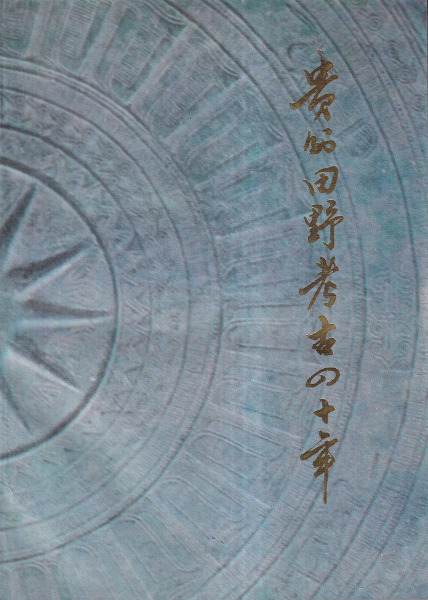 貴州田野考古四十年